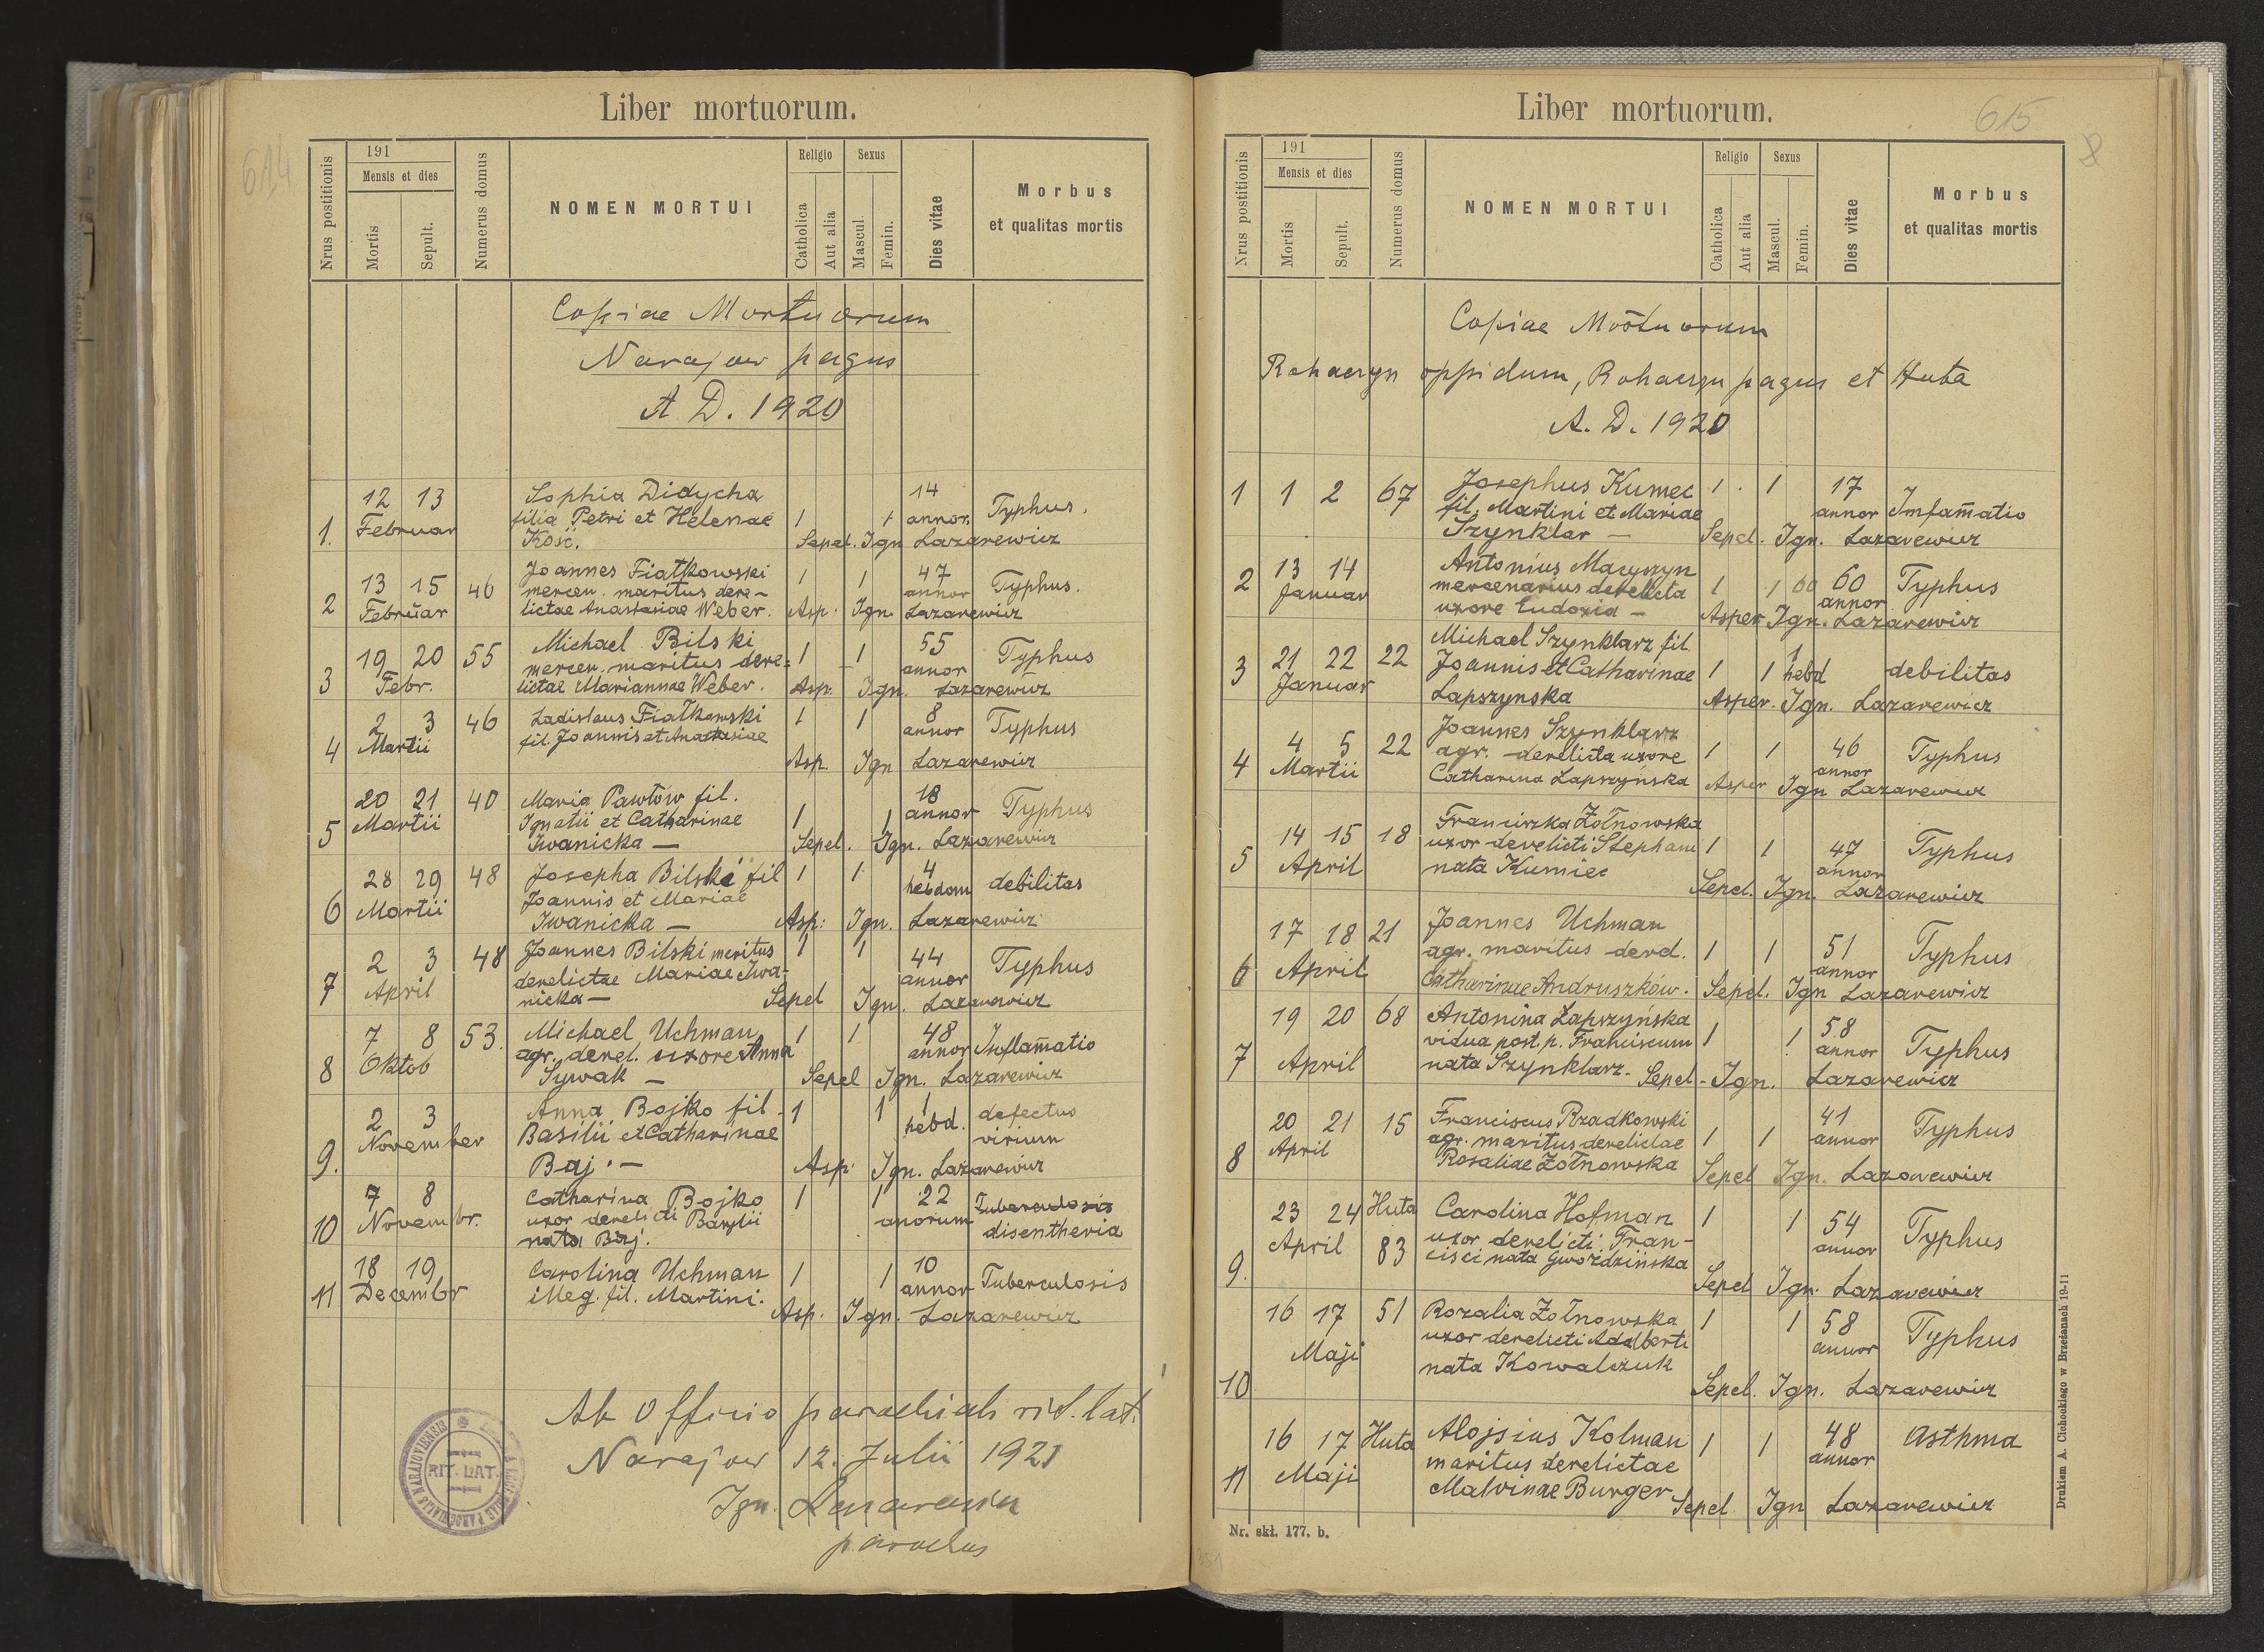 614
Liber mortuorum.
Nrus postitionis
191
Mensis et dies
Mortis
Sepult.
Numerus domus
NOMEN MORTUI
Religio
Catholica
Aut alia
Sexus
Mascul.
Femin.
Dies vitae
Morbus
et qualitas mortis
Copiae Mortuorum
Narajow pagus
A D. 1920
12 13 Sophia Didycha 14
filia Petri et Helenae 1 1 annor. Typhus.
1. Februar Kość. Sepel. Ign Lazarewicz
Joannes Fiałkowski 47
13 15 46 mercen. maritus dere- 1 1 annor Typhus.
2 Februar lictae Anastasiae Weber. Asp. Ign. Lazarewicz
Michael Bilski 55
19 20 55 mercen. maritus dere= 1 1 annor Typhus
3 Febr. lictae Mariannae Weber. Asp. Ign. Lazarewicz
2 3 46 Ladislaus Fiałkowski 1 1 8
4 Martii fil. Joannis et Anastasiae annor Typhus
Asp. Ign Lazarewicz
20 21 40 Maria Pawłów fil. 18
Martii Ignatii et Catharinae 1 1 annor Typhus
5 Iwanicka — Sepel. Ign. Lazarewicz
28 29 48 Josepha Bilski fil 1 1 4
6 Martii Joannis et Mariae hebdom debilitas
Iwanicka — Asp: Ign. Lazarewicz
2 3 48 Joannes Bilski meritus 1 1 44
7 April derelictae Mariae Iwa- annor Typhus
nicka — Sepel Ign. Lazarewicz
7 8 53. Michael Uchman 1 1 48
Oktob agr. derel. uxore Anna annor Inflam̄atio
8 Sywak — Sepel Ign. Lazarewicz
2 3 Anna Bojko fil. 1 1 1 defectus
November Basilii et Catharinae hebd. virium
9. Baj. — Asp. Ign. Lazarewicz
7 8 Catharina Bojko 1 1 22 Tuberculosis
10 Novembr. uxor derelicti Bazylii anorum disentheria
nata Baj.
18 19 Carolina Uchman 1 1 10
11 Decembr illeg. fil. Martini. annor Tuberculosis
Asp. Ign. Lazarewicz
Ab Officio parochiali rit. lat.
Narajow 12. Julii 1921
Ign. Lazarewicz
parochus
RIT. LAT.
615
8
Liber mortuorum.
Nrus postitionis
191
Mensis et dies
Mortis
Sepult.
Numerus domus
NOMEN MORTUI
Religio
Catholica
Aut alia
Sexus
Mascul.
Femin.
Dies vitae
Morbus
et qualitas mortis
Copiae Mortuorum
Rohaczyn oppidum, Rohaczyn pagus et Huta
A. D. 1920
1 1 2 67 Josephus Kumec 1 1 17
fil. Martini et Mariae annor Imfam̄atio
Szynklar — Sepel. Ign. Lazarewicz
2 13 14 Antonius Macyszyn
Januar mercenarius derelicta 1 1 60 60 Typhus
uxore Eudoxia — annor
Asper Ign. Lazarewicz
Michael Szynklarz fil. 1
3 21 22 22 Joannis et Catharinae 1 1 hebd debilitas
Januar Lapszynska Asper. Ign. Lazarewicz
Joannes Szynklarz
4 5 22 agr. derelicta uxore 1 1 46 Typhus
4 Martii Catharina Lapszyńska annor
Asper Ign Lazarewicz
Franciszka Żołnowska
14 15 18 uxor derelicti Stephani 1 1 47 Typhus
5 April nata Kumiec annor
Sepel. Ign. Lazarewicz
17 18 21 Joannes Uchman
agr. maritus derel. 1 1 51 Typhus
6 April Catharinae Andruszków. annor
Sepel. Ign Lazarewicz
19 20 68 Antonina Łapszyńska 58
vidua post. p. Franciscum 1 1 annor Typhus
7 April nata Szynklarz. Sepel - Ign. Lazarewicz
20 21 15 Franciscus Rzadkowski 41
April agr. maritus derelictae 1 1 annor Typhus
8 Rosaliae Żołnowska Sepel Ign. Lazarewicz
23 24 Huta Carolina Hofman 1 1 54
April 83 uxor derelicti Fran- annor Typhus
9. cisci nata Gwoździńska
Sepel Ign. Lazarewicz
16 17 51 Rozalia Żołnowska 1 1 58
Maji uxor derelicti Adalberti annor Typhus
nata Kowalczuk
10 Sepel. Ign. Lazarewicz
16 17 Huta Alojsius Kolman 1 1 48 Asthma
11 Maji maritus derelictae annor
Malvinae Burger
Sepel Ign Lazarewicz
Nr. skł. 177. b.
Drukiem A. Cichockiego w Brzeżanach 19-11